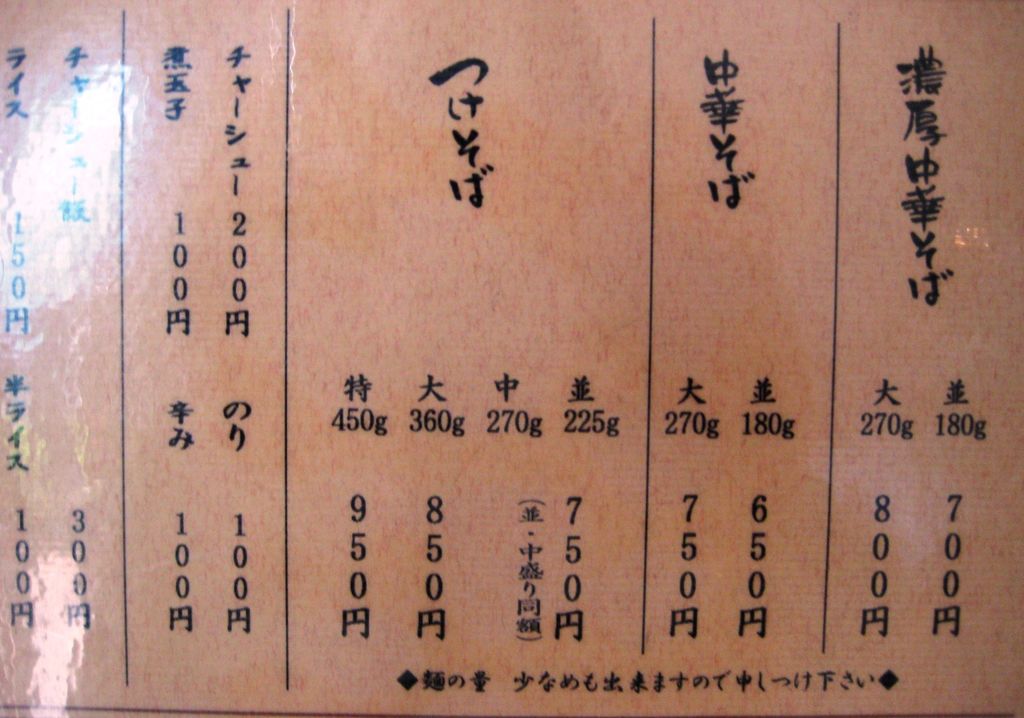 濃厚中華そば
並 180g 700円
大 270g 800円
中華そば
並 180g 650円
大 270g 750円
つけそば
並 225g 750円
中 270g (並・中盛り同額)
大 360g 850円
特 450g 950円
チャーシュー 200円
のり 100円
煮玉子 100円
辛み 100円
チャーシュー飯 300円
ライス 150円
半ライス 100円
◆麺の量 少なめも出来ますので申しつけ下さい◆